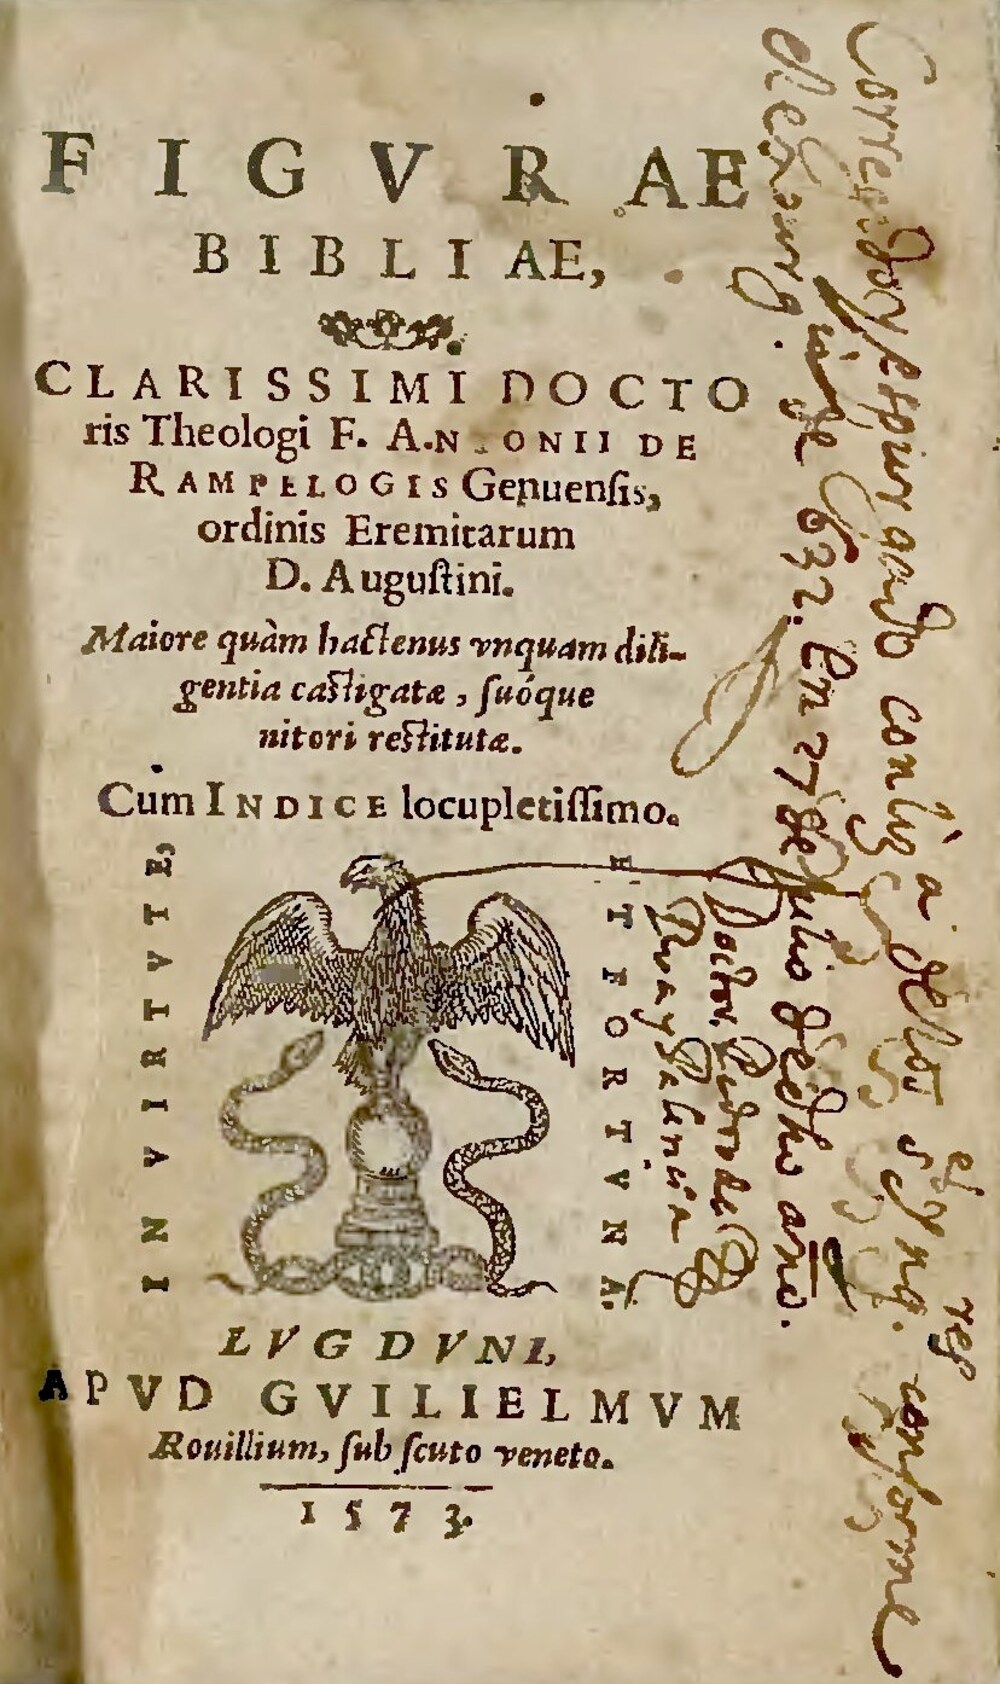 FIGVRAE
BIBLIAE,
CLARISSIMI DOCTO
ris Theologi F. A.NTONII DE
RAMPELOGIS Genuenſis,
ordinis Eremitarum
D. Auguſtini.
Maiore quàm hactenus vnquam dili-
gentia caſtigatæ, ſuóque
nitori reſtitutæ.
Cum INDICE locupletiſſimo.
IN VIRTVTE,
ET FORTVNA.
LVGDVNI,
APVD GVILIELMVM
Rouillium, ſub ſcuto veneto.
1573.
Corregido y espurgado conforme
al de 632. En 27 de Julio de dho año.
Doctor Pedro de